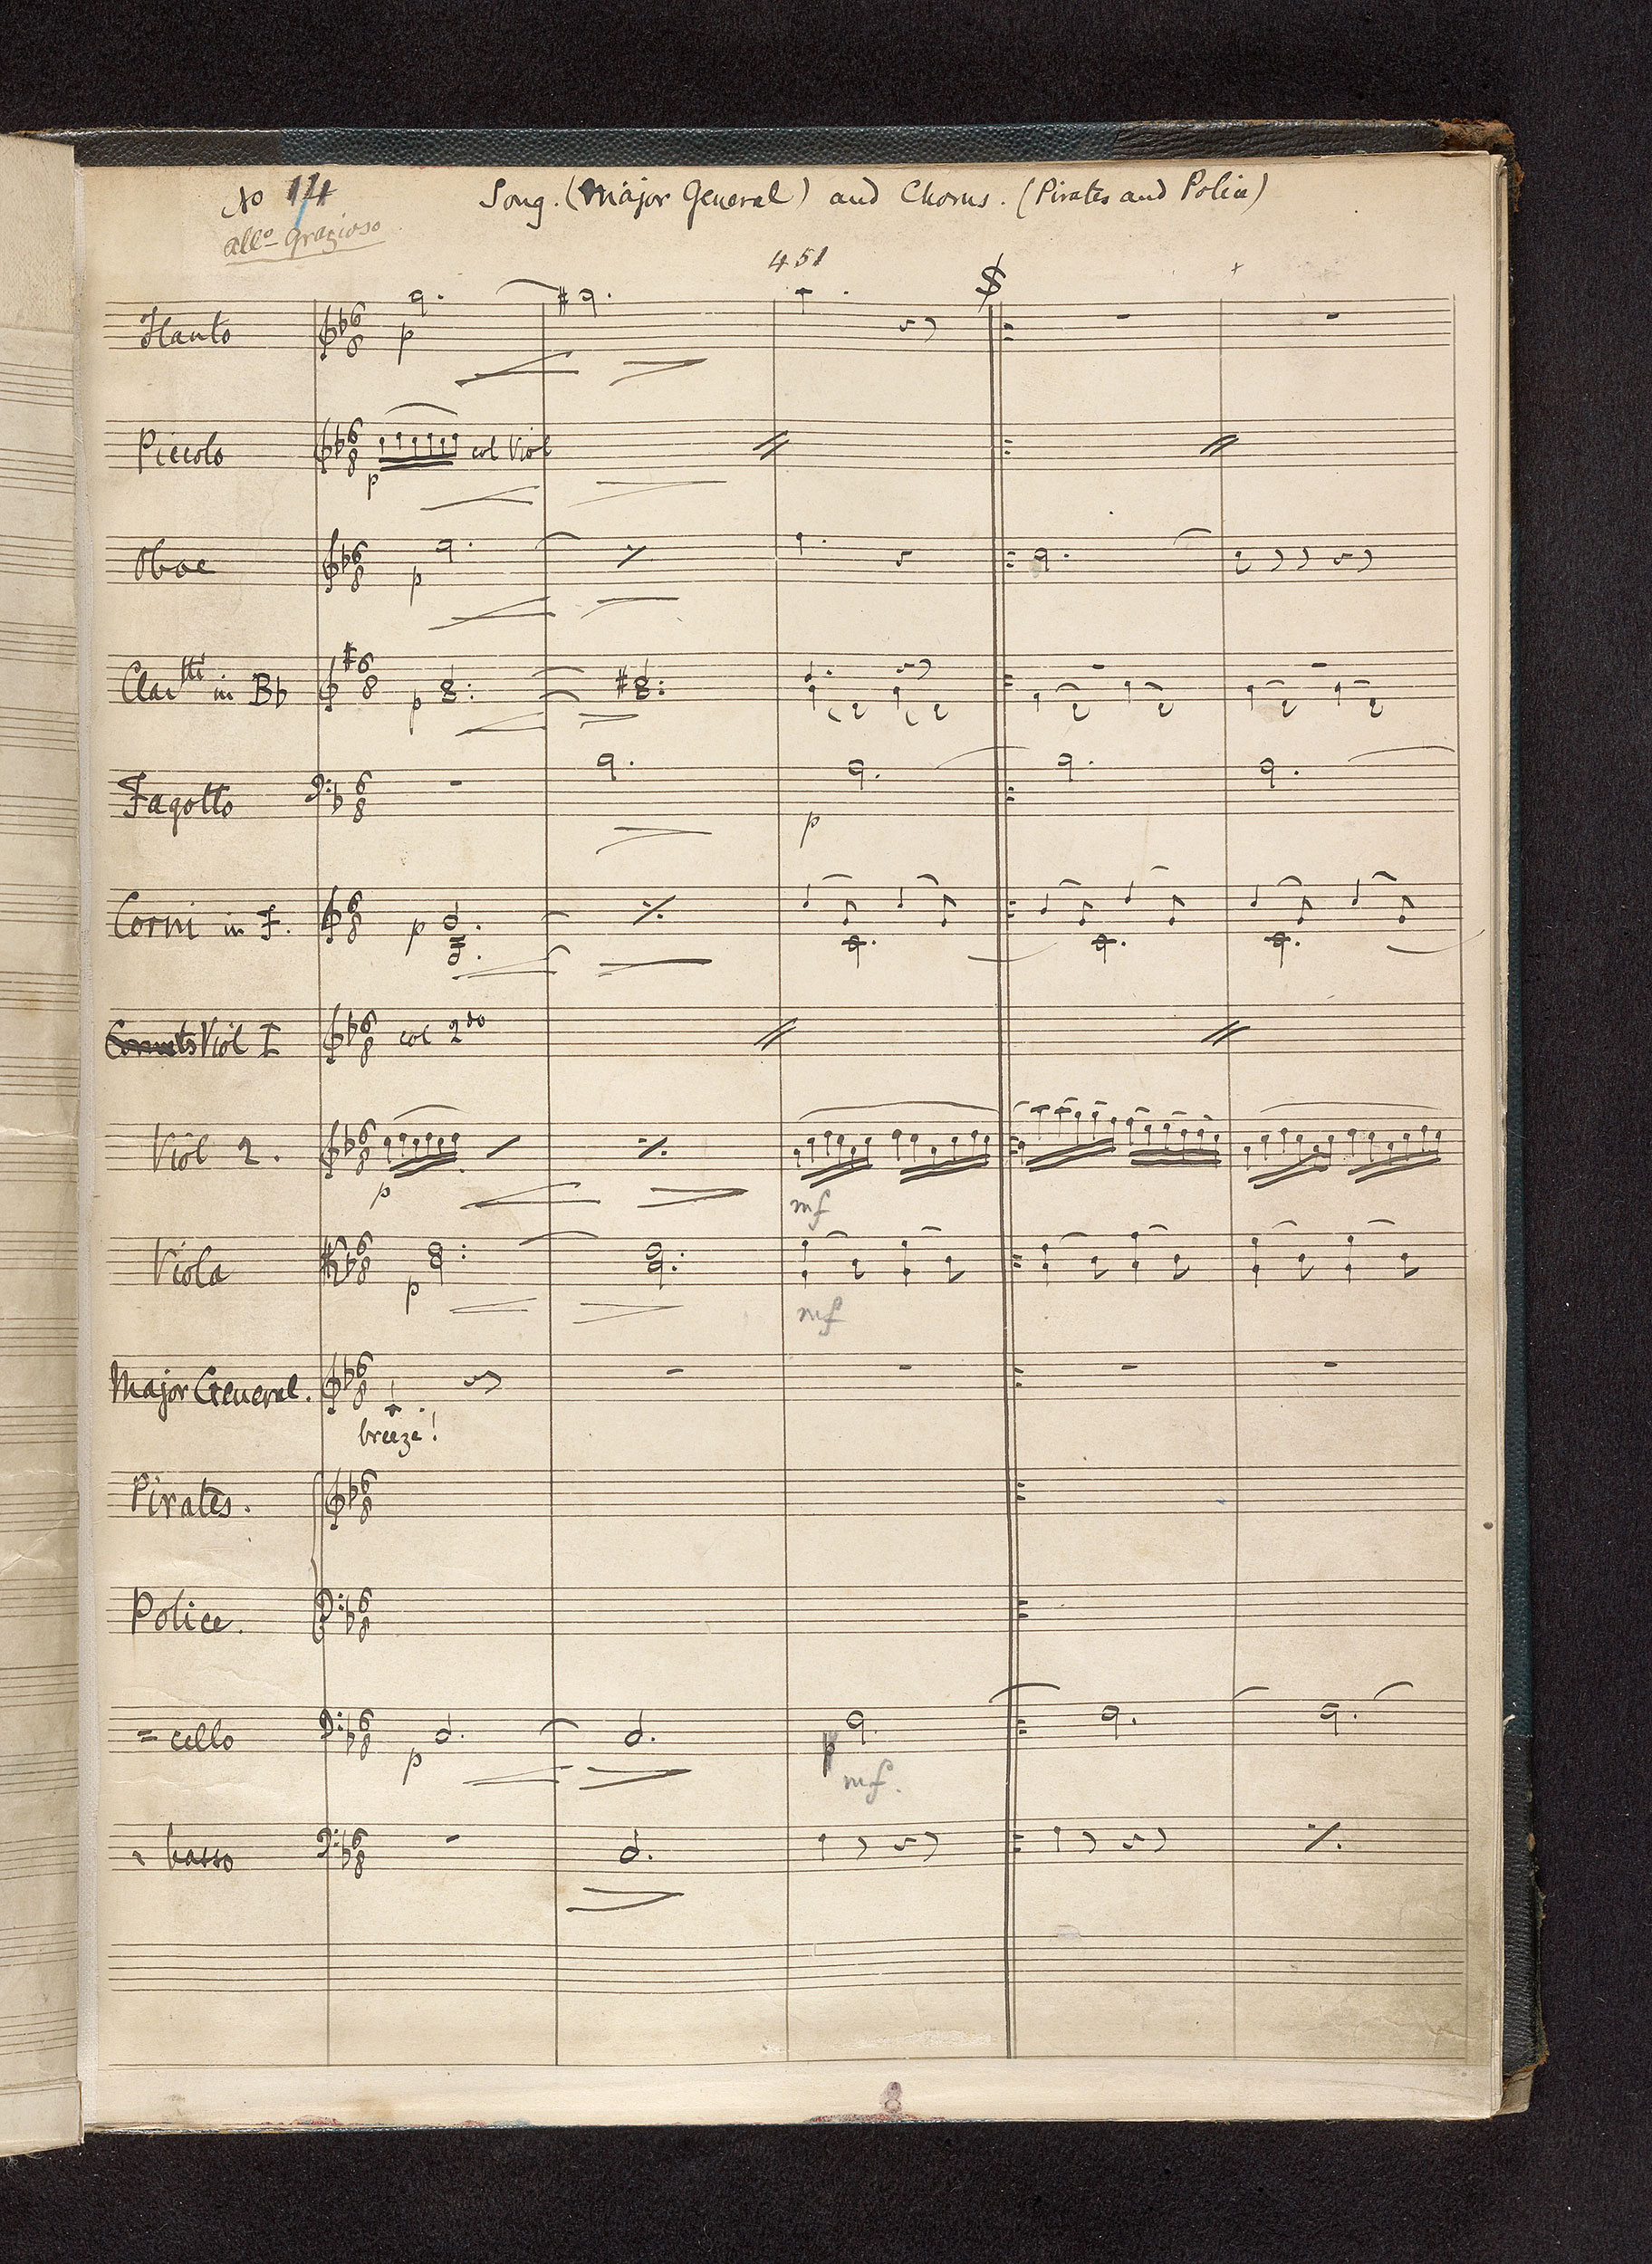 No 14 Song. (Major General) and Chorus. (Pirates and Police)
allo grazioso
451
Flauto p
Piccolo p col Viol
Oboe p
Clartti in B♭ p
Fagotto p
Corni in F. p
Cornets Viol I col 2do
Viol 2. p mf
Viola p mf
Major General.
breeze!
Pirates.
Police.
= cello p p
mf.
" basso
8